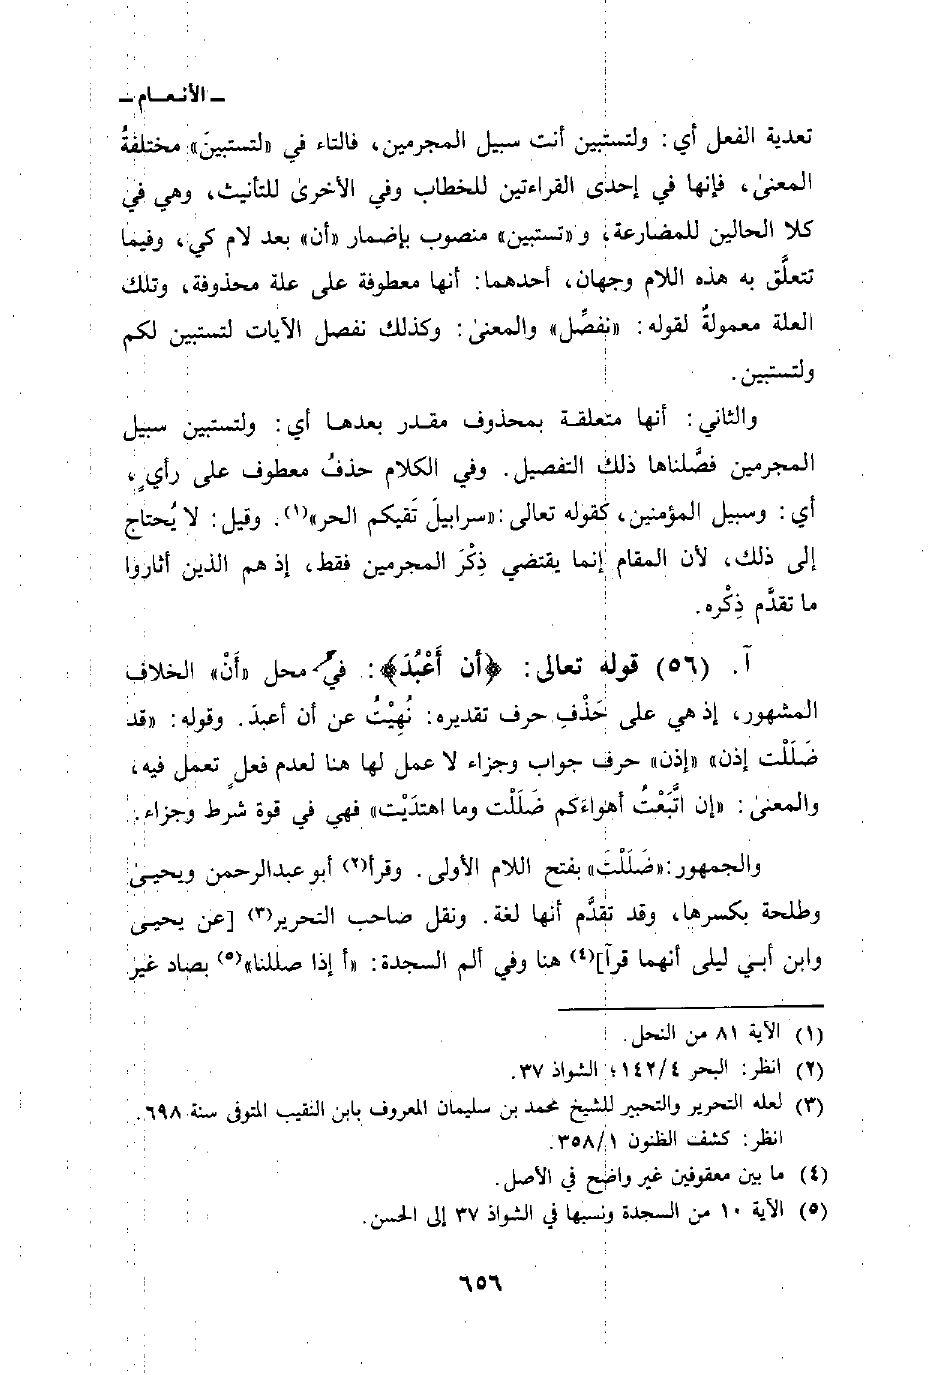 ـ الأنعـام ـ
تعدية الفعل أي: ولتستبين أنت سبيل المجرمين، فالتاء في «لتستبينَ» مختلفةُ
المعنىٰ، فإنها في إحدى القراءتين للخطاب وفي الأخرىٰ للتأنيث، وهي في
كلا الحالين للمضارعة، و«تستبين» منصوب بإضمار «أن» بعد لام كي، وفيما
تتعلَّق به هذه اللام وجهان، أحدهما: أنها معطوفة على علة محذوفة، وتلك
العلة معمولةٌ لقوله: «نفصِّل» والمعنىٰ: وكذلك نفصل الآيات لتستبين لكم
ولتستبين.
والثاني: أنها متعلقة بمحذوف مقدر بعدها أي: ولتستبين سبيل
المجرمين فصَّلناها ذلك التفصيل. وفي الكلام حذفُ معطوف على رأيٍ،
أي: وسبيل المؤمنين، كقوله تعالى: «سرابيلَ تَقيكم الحر»(١). وقيل: لا يُحتاج
إلى ذلك، لأن المقام إنما يقتضي ذِكْرَ المجرمين فقط، إذ هم الذين أثاروا
ما تقدَّم ذِكْره.
آ. (٥٦) قوله تعالى: ﴿أن أَعْبُدَ﴾: في محل «أَنْ» الخلاف
المشهور، إذ هي على حَذْفِ حرف تقديره: نُهِيْتُ عن أن أعبدَ. وقوله: «قد
ضَلَلْت إذن» «إذن» حرف جواب وجزاء لا عمل لها هنا لعدم فعلٍ تعمل فيه،
والمعنىٰ: «إن اتَّبَعْتُ أهواءَكم ضَلَلْت وما اهتدَيْت» فهي في قوة شرط وجزاء.
والجمهور: «ضَلَلْتَ» بفتح اللام الأولى. وقرأ(٢) أبو عبدالرحمن ويحيىٰ
وطلحة بكسرها، وقد تقدَّم أنها لغة. ونقل صاحب التحرير(٣) [عن يحيى
وابن أبي ليلى أنهما قرآ](٤) هنا وفي ألم السجدة: «أ إذا صللنا»(٥) بصاد غير
(١) الآية ٨١ من النحل.
(٢) انظر: البحر ١٤٢/٤؛ الشواذ ٣٧.
(٣) لعله التحرير والتحبير للشيخ محمد بن سليمان المعروف بابن النقيب المتوفى سنة ٦٩٨.
انظر: كشف الظنون ٣٥٨/١.
(٤) ما بين معقوفين غير واضح في الأصل.
(٥) الآية ١٠ من السجدة ونسبها في الشواذ ٣٧ إلى الحسن.
٦٥٦